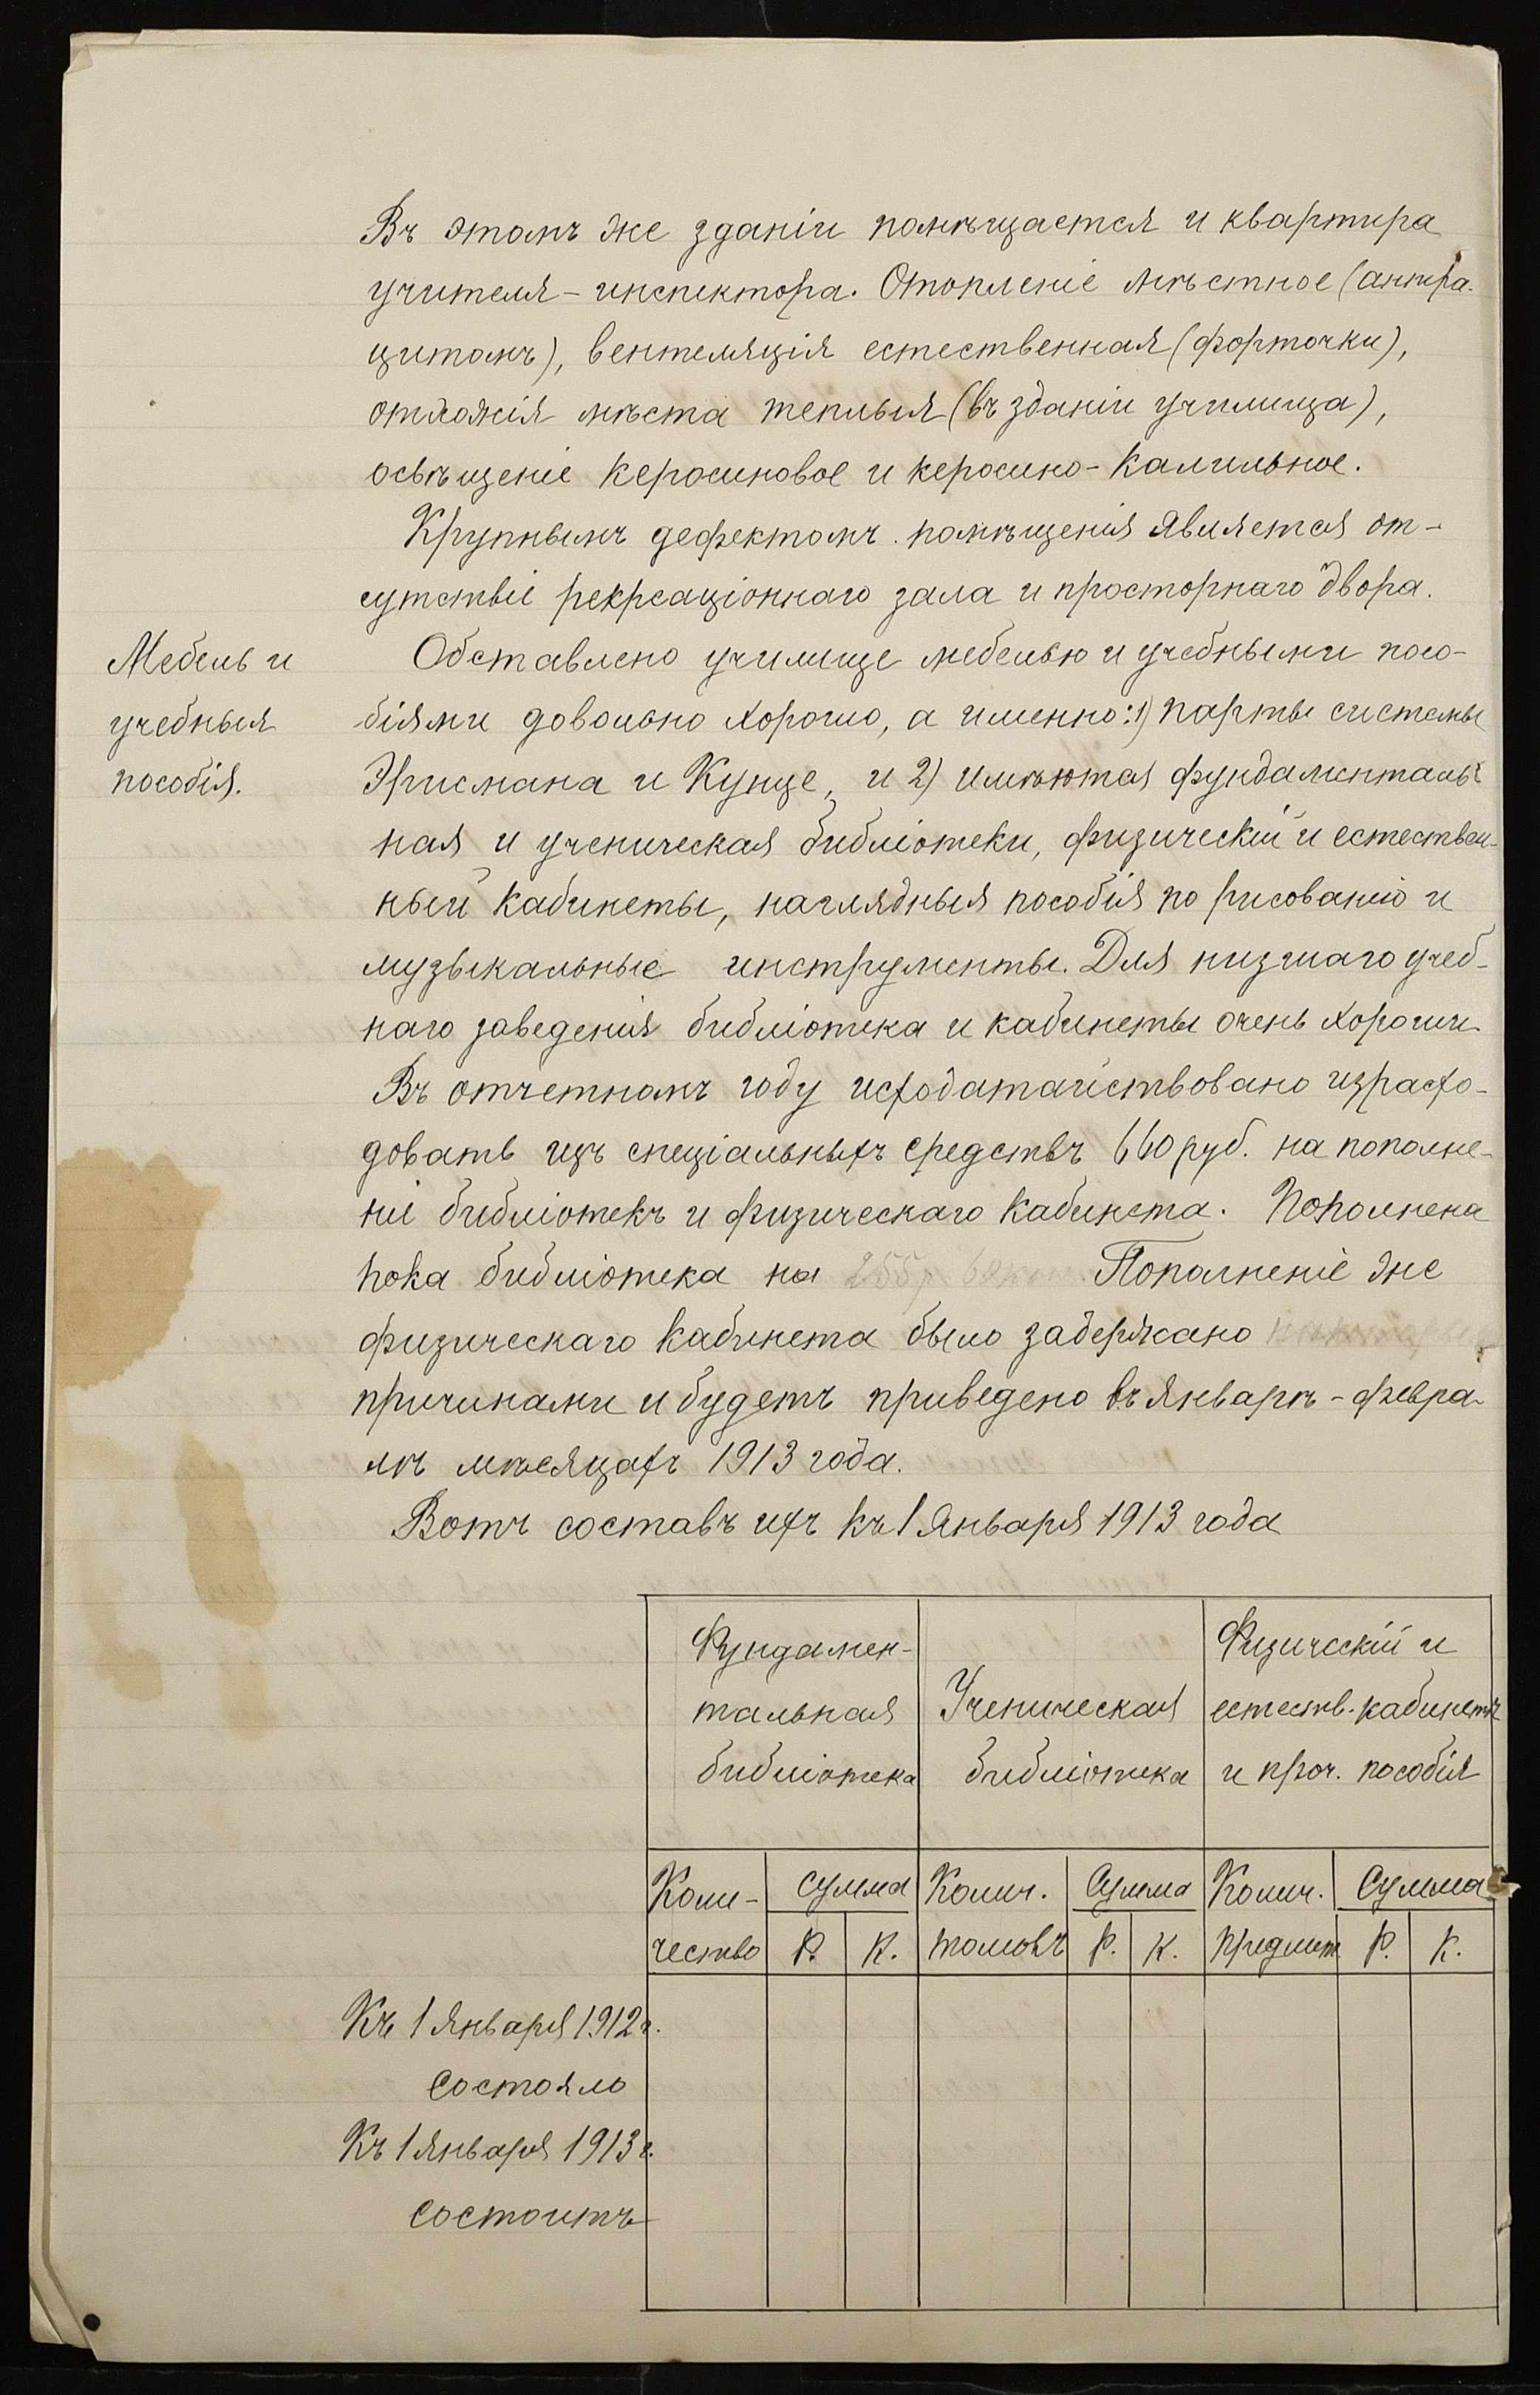 Въ этомъ же зданіи помѣщается и квартира
учителя-инспектора. Отопленіе мѣстное (антра-
цитомъ), вентеляція естественная (форточки),
отхожія мѣста теплыя (въ зданіи училища),
освѣщеніе керосиновое и керосино-калильное.
Крупнымъ дефектомъ помѣщенія является от-
сутствіе рекреаціоннаго зала и просторнаго двора.
Мебель и
учебныя
пособія.
Обставлено училище мебелью и учебными посо-
біями довольно хорошо, а именно: 1) парты системы
Эрисмана и Кунце, и 2) имѣются фундаменталь-
ная и ученическая библіотеки, физическій и естествен-
ный кабинеты, наглядныя пособія по рисованію и
музыкальные инструменты. Для низшаго учеб-
наго заведенія библіотека и кабинеты очень хороши.
Въ отчетномъ году исходатайствовано израсхо-
довать изъ спеціальныхъ средствъ 660 руб. на пополне-
ніе библіотекъ и физическаго кабинета. Пополнена
пока библіотека на 255 р. Пополненіе же
физическаго кабинета было задержано
причинами и будетъ приведено въ Январѣ-февра-
лѣ мѣсяцахъ 1913 года.
Вотъ составъ ихъ къ 1 Января 1913 года
Фундамен-
тальная
библіотека
Ученическая
библіотека
Физическій и
естеств. кабинетъ
и проч. пособія
Коли-
чество
Сумма
Р. К.
Колич.
томовъ
Сумма
Р. К.
Колич.
предмет.
Сумма
Р. К.
Къ 1 Января 1912 г.
состояло
Къ 1 Января 1913 г.
состоитъ